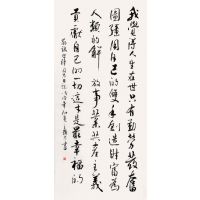 我覺得人生在世只有勤勞發奮
圖強用自己的雙手創造財富為
人類的解放事業共產主義
貢獻自己的一切這才是最幸福的